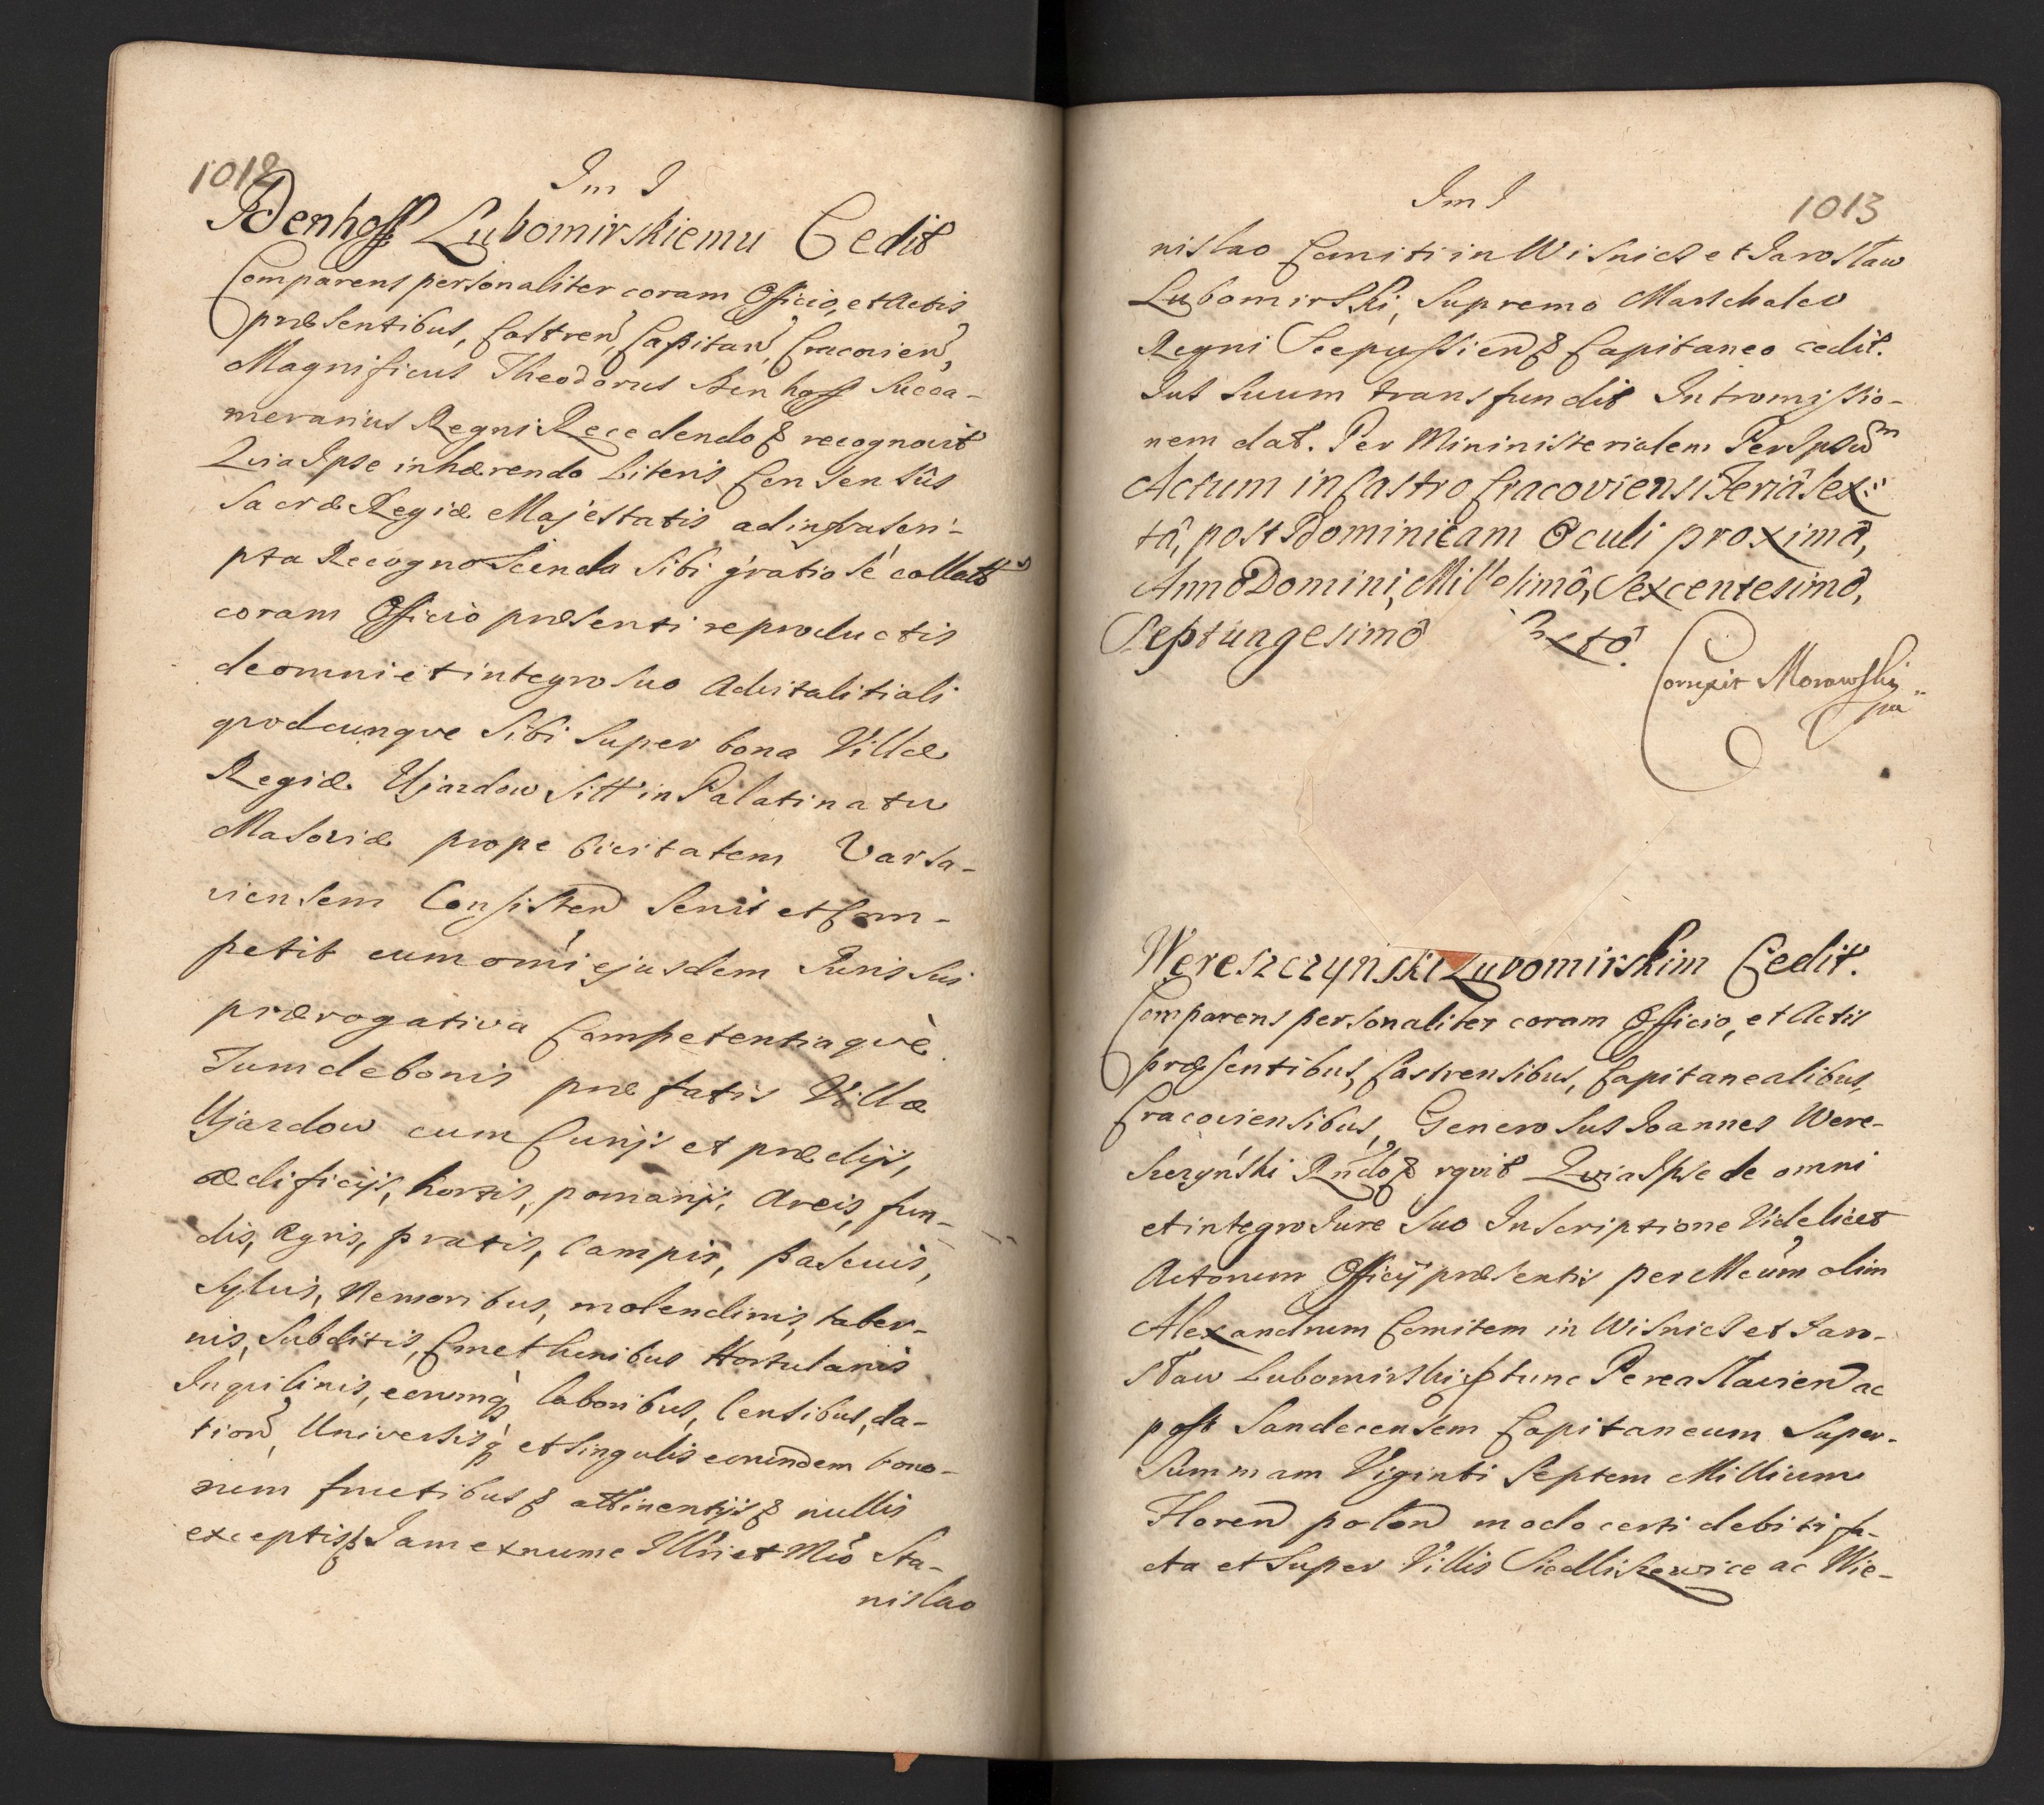 1012
Im I
Denhoff Lubomirskiemu Cedit
Comparens personaliter coram Officio, et Actis
præsentibus, Castren, Capitan, Cracovien,
Magnificus Theodorus Denhoff Succa-
merarius Regni Recedendo & recognovit
Quia Ipse inhærendo Literis Consensûs
Sacræ Regiæ Majestatis ad infrascri-
pta Recognoscenda sibi gratiose collatt
coram Officio præsenti reproductis
de omni et integro suo Advitalitiali
qvodcunqve sibi super bona Villæ
Regiæ Ujazdow sitt in Palatinatu
Masoviæ prope Civitatem Varsa-
viensem Consisten servit et Com-
petit cum omi ejusdem Juris sui
prærogativa Competentiaqvè
Tum de bonis præfatis Villæ
Ujazdow cum Curijs et prædijs,
ædificijs, hortis, pomarijs, Areis, fun-
dis, Agris, pratis, Campis, pascuis,
sylvis, Nemoribus, molendinis, taber-
nis, Subditis, Cmethonibus Hortulanis
Inqvilinis, eorumq laboribus, Censibus, da-
tion, Universisq et singulis eorundem bono-
rum fructibus & attinentijs & nullis
exceptis & Jam ex nunc Illri et Mco Sta-
nislao
Im I
1013
nislao Comiti in Wisnicz et Jarosław
Lubomirski, Supremo Marschalco
Regni Scepussien & Capitaneo cedit.
Jus suum transfundit Intromissio-
nem dat. Per Mininisterialem Per Ipsum
Actum in Castro Cracoviensi Feriâ Sex-
tâ, post Dominicam Oculi proximâ,
Annô Domini, Millesimô, Sexcentesimô,
Septuagesimô xtô.
Correxit Morawski
mp
Wereszczynski Lubomirskim Cedit.
Comparens personaliter coram Officio, et Actis
præsentibus, Castrensibus, Capitanealibus,
Cracoviensibus, Generosus Joannes Were-
szczyński Rndo & rgvit Qvia Ipse de omni
et integro Jure suo Inscriptione Videlicet
Actorum Officij præsentis per Mcum olim
Alexandrum Comitem in Wisnicz et Jaro-
sław Lubomirski tunc Pereasłavien ac
post Sandecensem Capitaneum Super-
Summam Viginti Septem Millium
Floren polon modo certi debiti fa-
cta et super Villis Siedliszewice ac Wie-